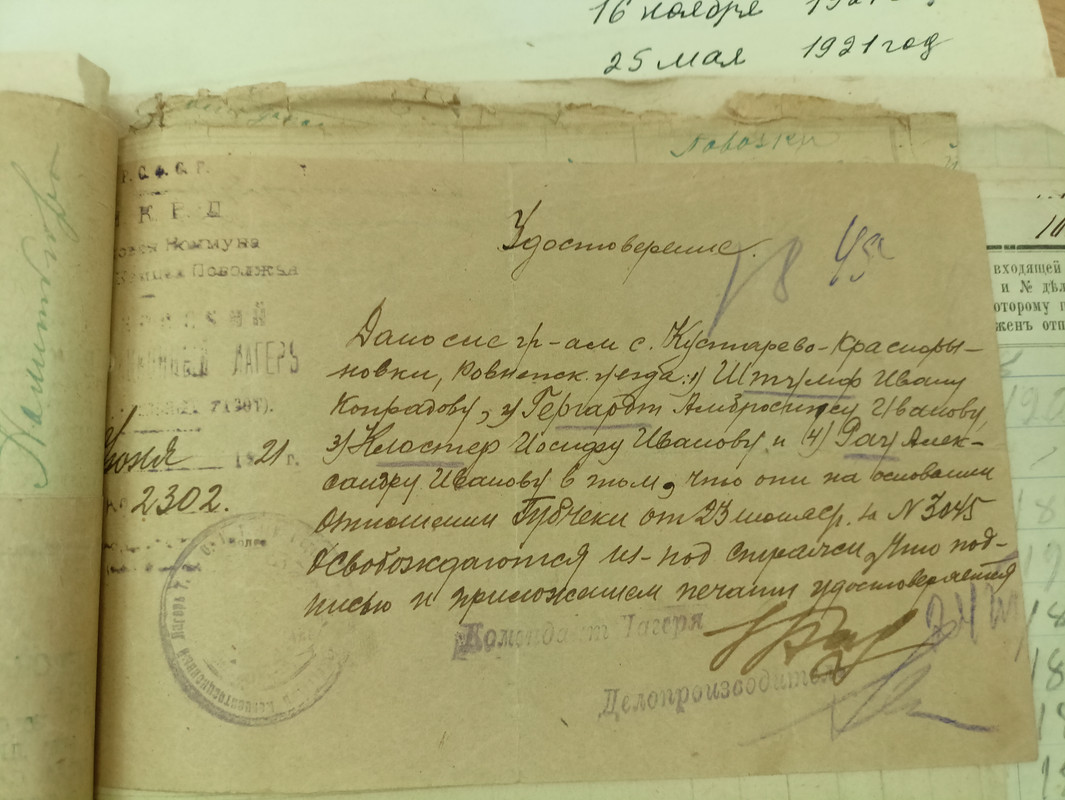 16 ноября 1921
25 мая 1921 год
Повозки
Р. С. Ф. С. Р.
К. В. Д
Коммуна
Поволжья
ЛАГЕРЬ
21 г.
2302.
Удостоверение.
Дано сие гр-ам с. Кустарево-Красноры-
новки, Ровненск. уезда: 1) Штумпф Ивану
Конрадову, 2) Гергардт Амбросиусу Иванову,
3) Клостер Иосифу Иванову и 4) Рау Алек-
сандру Иванову в том, что они на основании
отношения Губчеки от 23 июня с/г. за № 3045
освобождаются из-под стражи, что под-
писью и приложением печати удостоверяется
Комендант Лагеря
Делопроизводитель
входящей
и № дѣл
оторому п
женъ отп